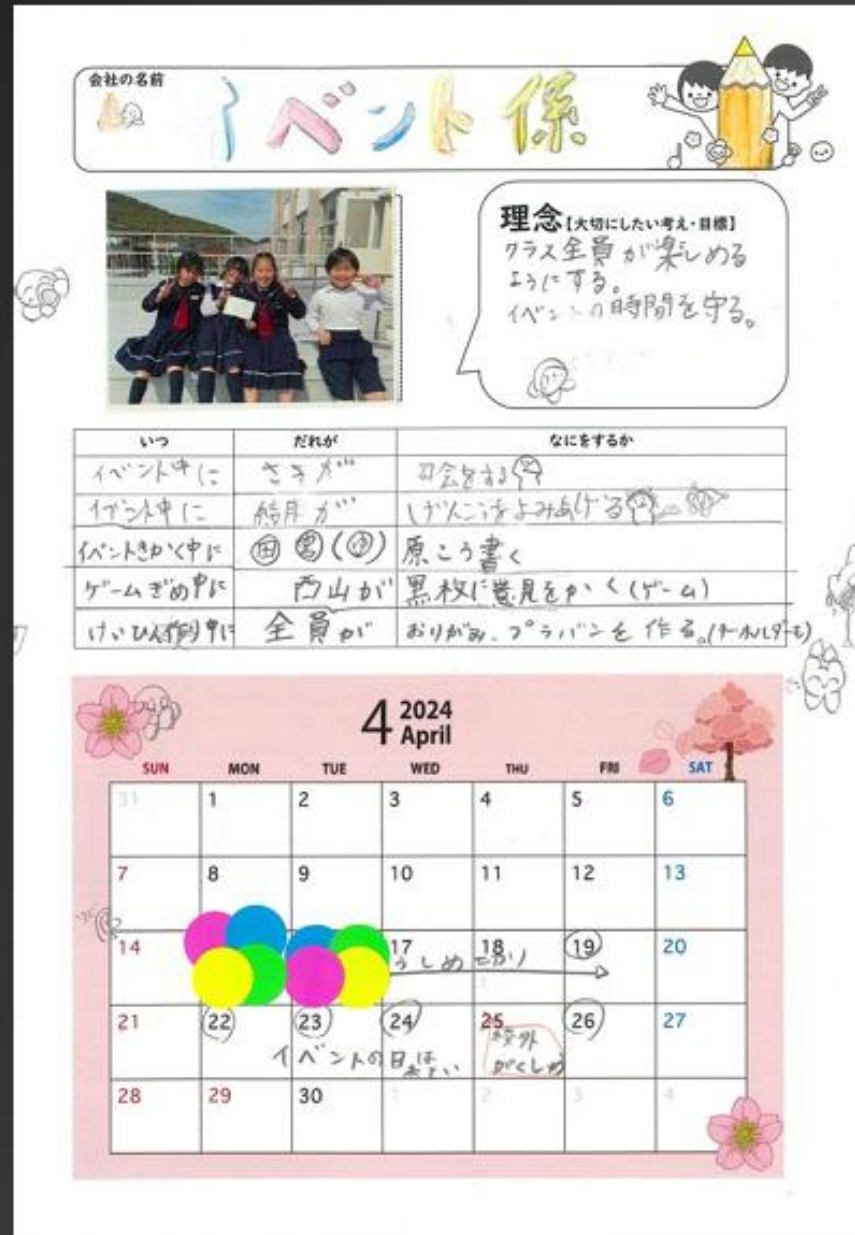 会社の名前
イベント係
理念【大切にしたい考え・目標】
クラス全員が楽しめる
ようにする。
イベントの時間を守る。
いつ だれが なにをするか
イベント中に さきが 司会をする
イベント中に 結月が げんこうをよみあげる
イベントきかく中に 田 (ゆ) 原こう書く
ゲームぎめ中に 西山が 黒板に意見をかく(ゲーム)
けいひん作り中に 全員が おりがみ、プラバンを作る。(キーホルダーも)
4 2024
April
SUN MON TUE WED THU FRI SAT
31 1 2 3 4 5 6
7 8 9 10 11 12 13
14 17 18 19 20
しめきり
21 22 23 24 25 26 27
イベントの日は
校外
がくしゅう
28 29 30 1 2 3 4